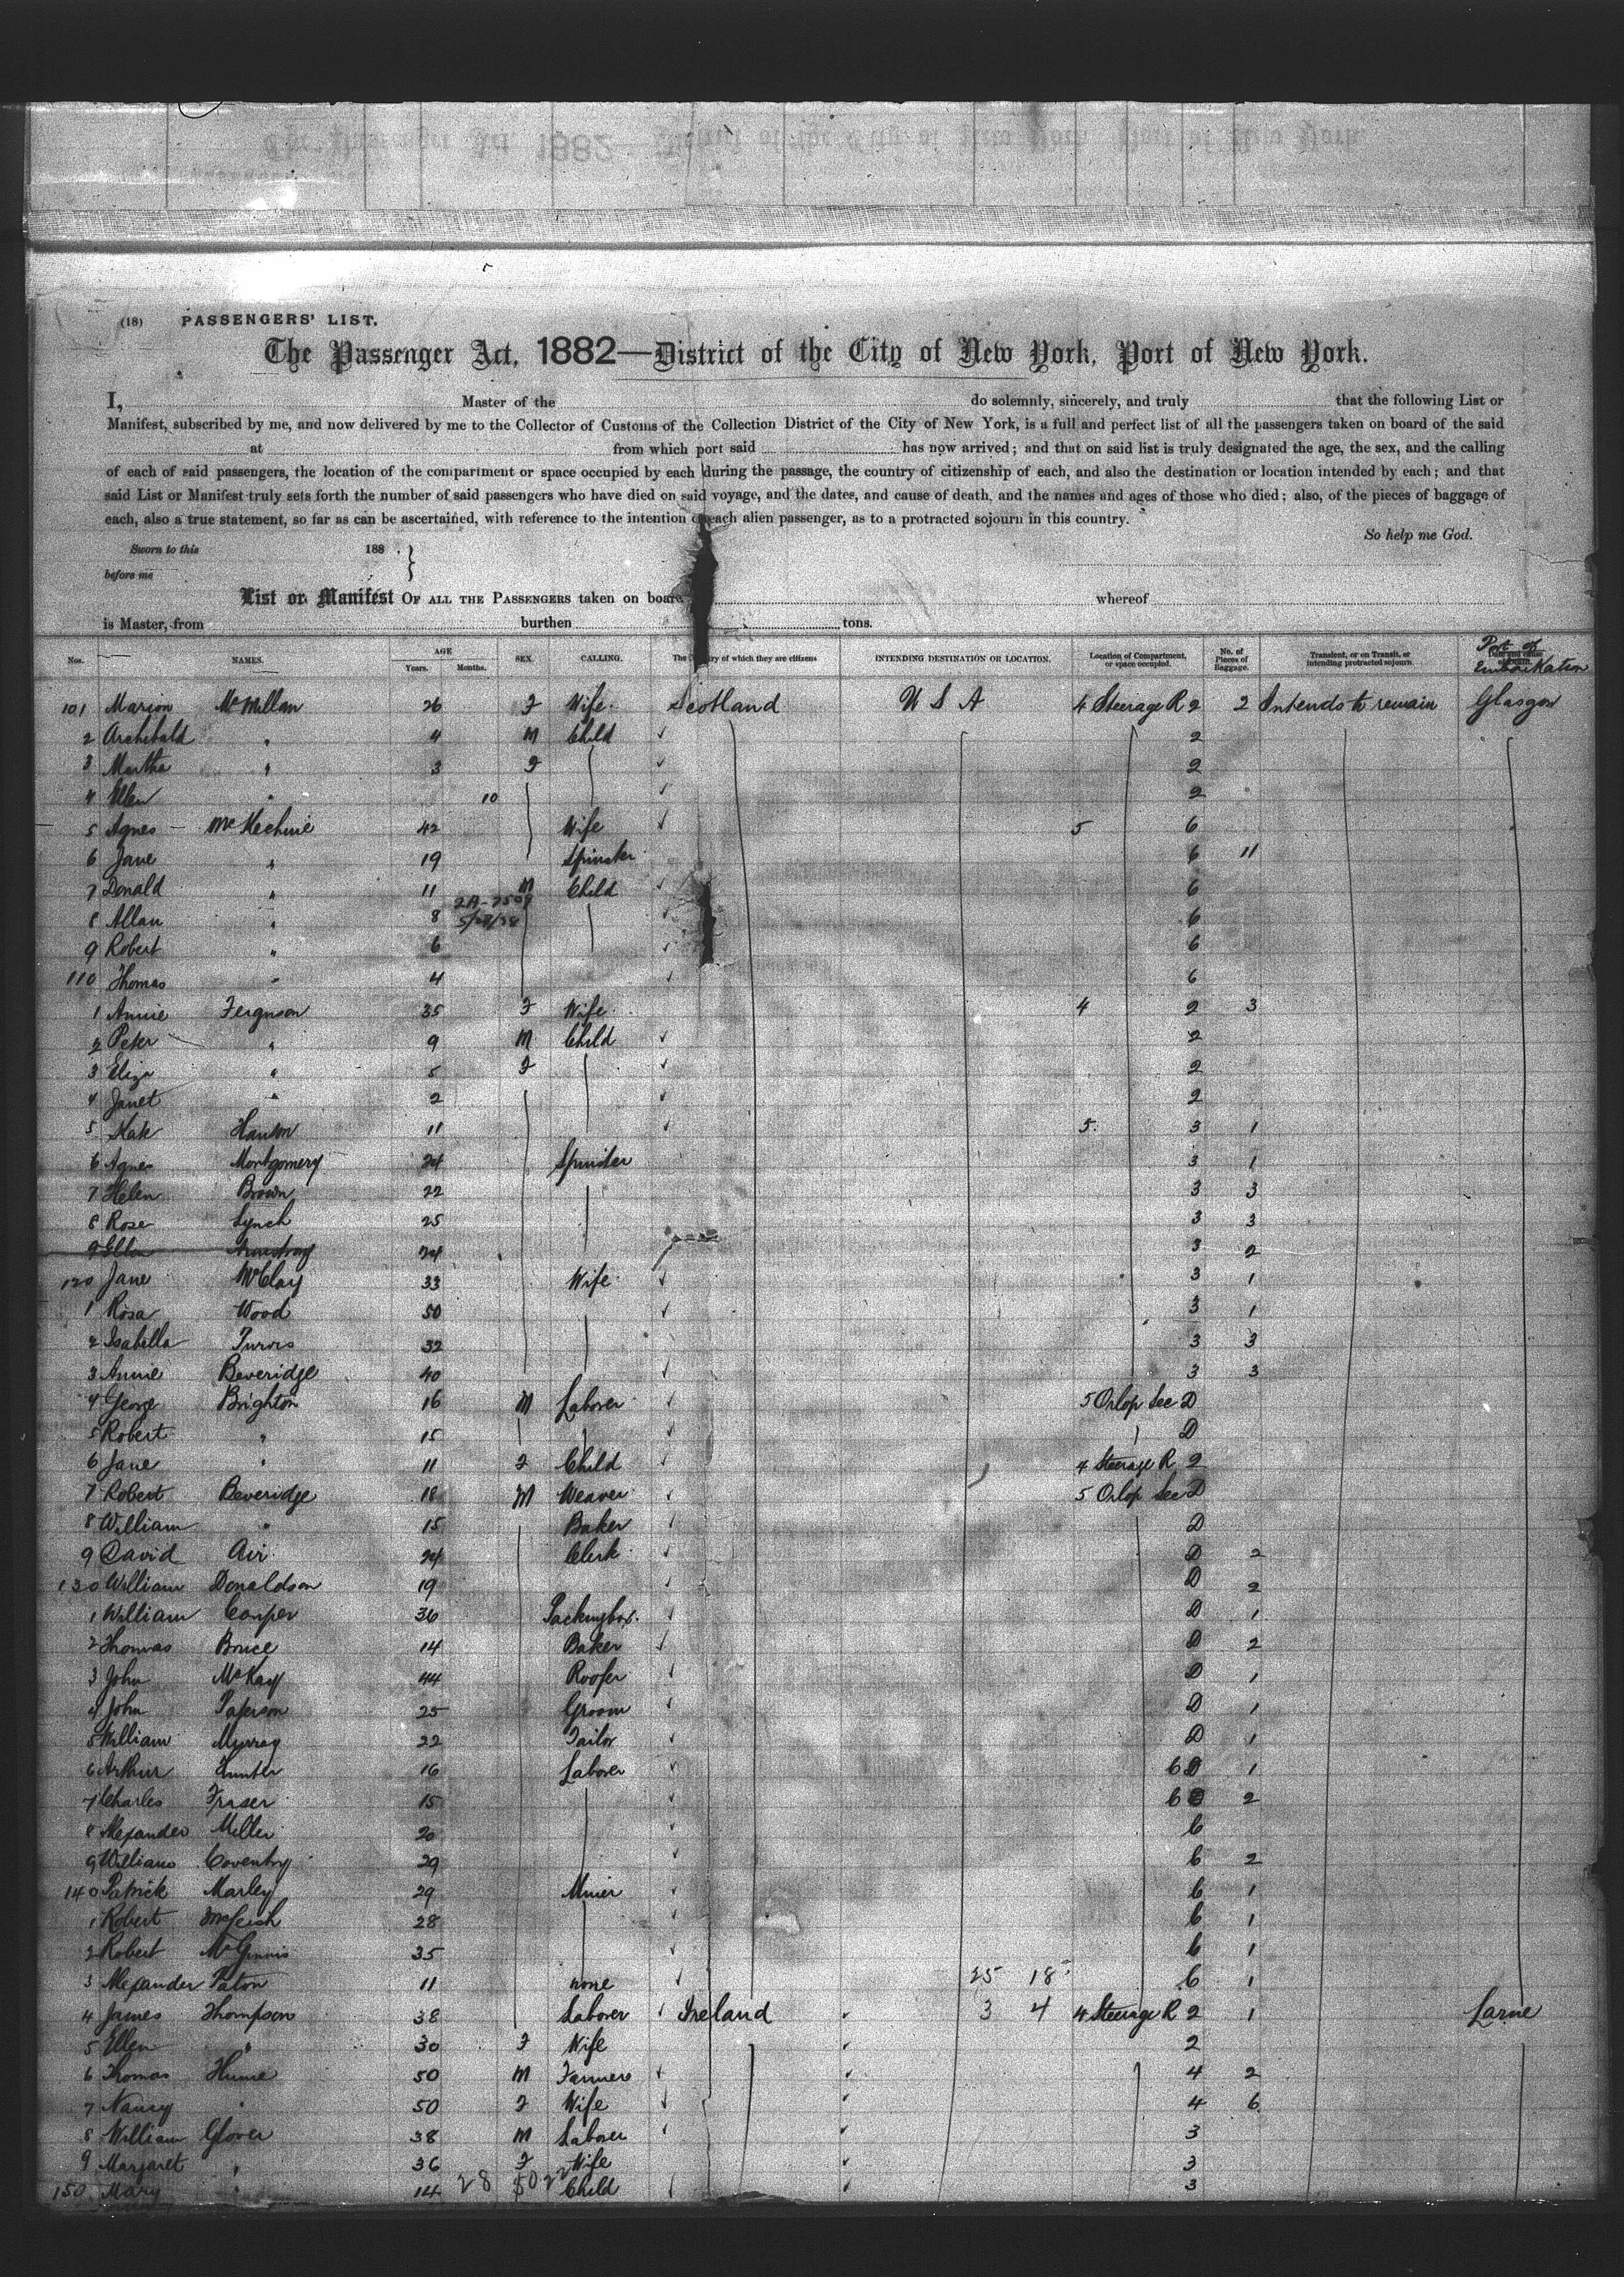 (18) PASSENGERS' LIST.
The Passenger Act, 1882—District of the City of New York, Port of New York.
I, Master of the do solemnly, sincerely, and truly that the following List or
Manifest, subscribed by me, and now delivered by me to the Collector of Customs of the Collection District of the City of New York, is a full and perfect list of all the passengers taken on board of the said
at from which port said has now arrived; and that on said list is truly designated the age, the sex, and the calling
of each of said passengers, the location of the compartment or space occupied by each during the passage, the country of citizenship of each, and also the destination or location intended by each; and that
said List or Manifest truly sets forth the number of said passengers who have died on said voyage, and the dates, and cause of death, and the names and ages of those who died; also, of the pieces of baggage of
each, also a true statement, so far as can be ascertained, with reference to the intention of each alien passenger, as to a protracted sojourn in this country.
So help me God.
Sworn to this 188 . }
before me
List or Manifest OF ALL THE PASSENGERS taken on board whereof
is Master, from burthen tons.
Nos. NAMES. AGE Years. Months. SEX. CALLING. The ry of which they are citizens INTENDING DESTINATION OR LOCATION. Location of Compartment, or space occupied. No. of Pieces of Baggage. Transient, or on Transit, or intending protracted sojourn. Port of Embarkation
101 Marion McMillan 26 F Wife Scotland U S A 4 Steerage R 2 2 Intends to remain Glasgow
2 Archibald " 4 M Child 2
3 Martha " 3 F 2
4 Ellen " 10 2
5 Agnes McKechnie 42 Wife 5 6
6 Jane " 19 Spinster 6 11
7 Donald " 11 M Child 6
2A-2509
8 Allan " 8 5/27/38 6
9 Robert " 6 6
110 Thomas " 4 6
1 Annie Ferguson 35 F Wife 4 2 3
2 Peter " 9 M Child 2
3 Eliza " 5 F 2
4 Janet " 2 2
5 Kate Hanton 11 5 3 1
6 Agnes Montgomery 24 Spinster 3 1
7 Helen Brown 22 3 3
8 Rose Lynch 25 3 3
9 Ellen Armstrong 24 3 2
120 Jane McClay 33 Wife 3 1
1 Rosa Wood 50 3 1
2 Isabella Purves 32 3 3
3 Annie Beveridge 40 3 3
4 George Brighton 16 M Laborer 5 Orlop Sec D
5 Robert " 15 D
6 Jane " 11 F Child 4 Steerage R 2
7 Robert Beveridge 18 M Weaver 5 Orlop Sec D
8 William " 15 Baker D
9 David Air 24 Clerk D 2
130 William Donaldson 19 D 2
1 William Cooper 36 D 1
2 Thomas Bruce 14 Baker D 2
3 John McKay 44 Roofer D 1
4 John Paterson 25 Groom D 1
5 William Murray 22 Tailor D 1
6 Arthur Hunter 16 Laborer 6 D 1
7 Charles Fraser 15 6 2
8 Alexander Miller 20 6
9 William Coventry 29 6 2
140 Patrick Marley 29 Miner 6 1
1 Robert McLeish 28 6 1
2 Robert McGinnis 35 6 1
3 Alexander Paton 11 none 25 18 6 1
4 James Thompson 38 Laborer Ireland 3 4 4 Steerage R 2 1 Larne
5 Ellen " 30 F Wife 2
6 Thomas Hume 50 M Farmer 4 2
7 Nancy " 50 F Wife 4 6
8 William Glover 38 M Laborer 3
9 Margaret " 36 F Wife 3
150 Mary " 14 28 Child 3